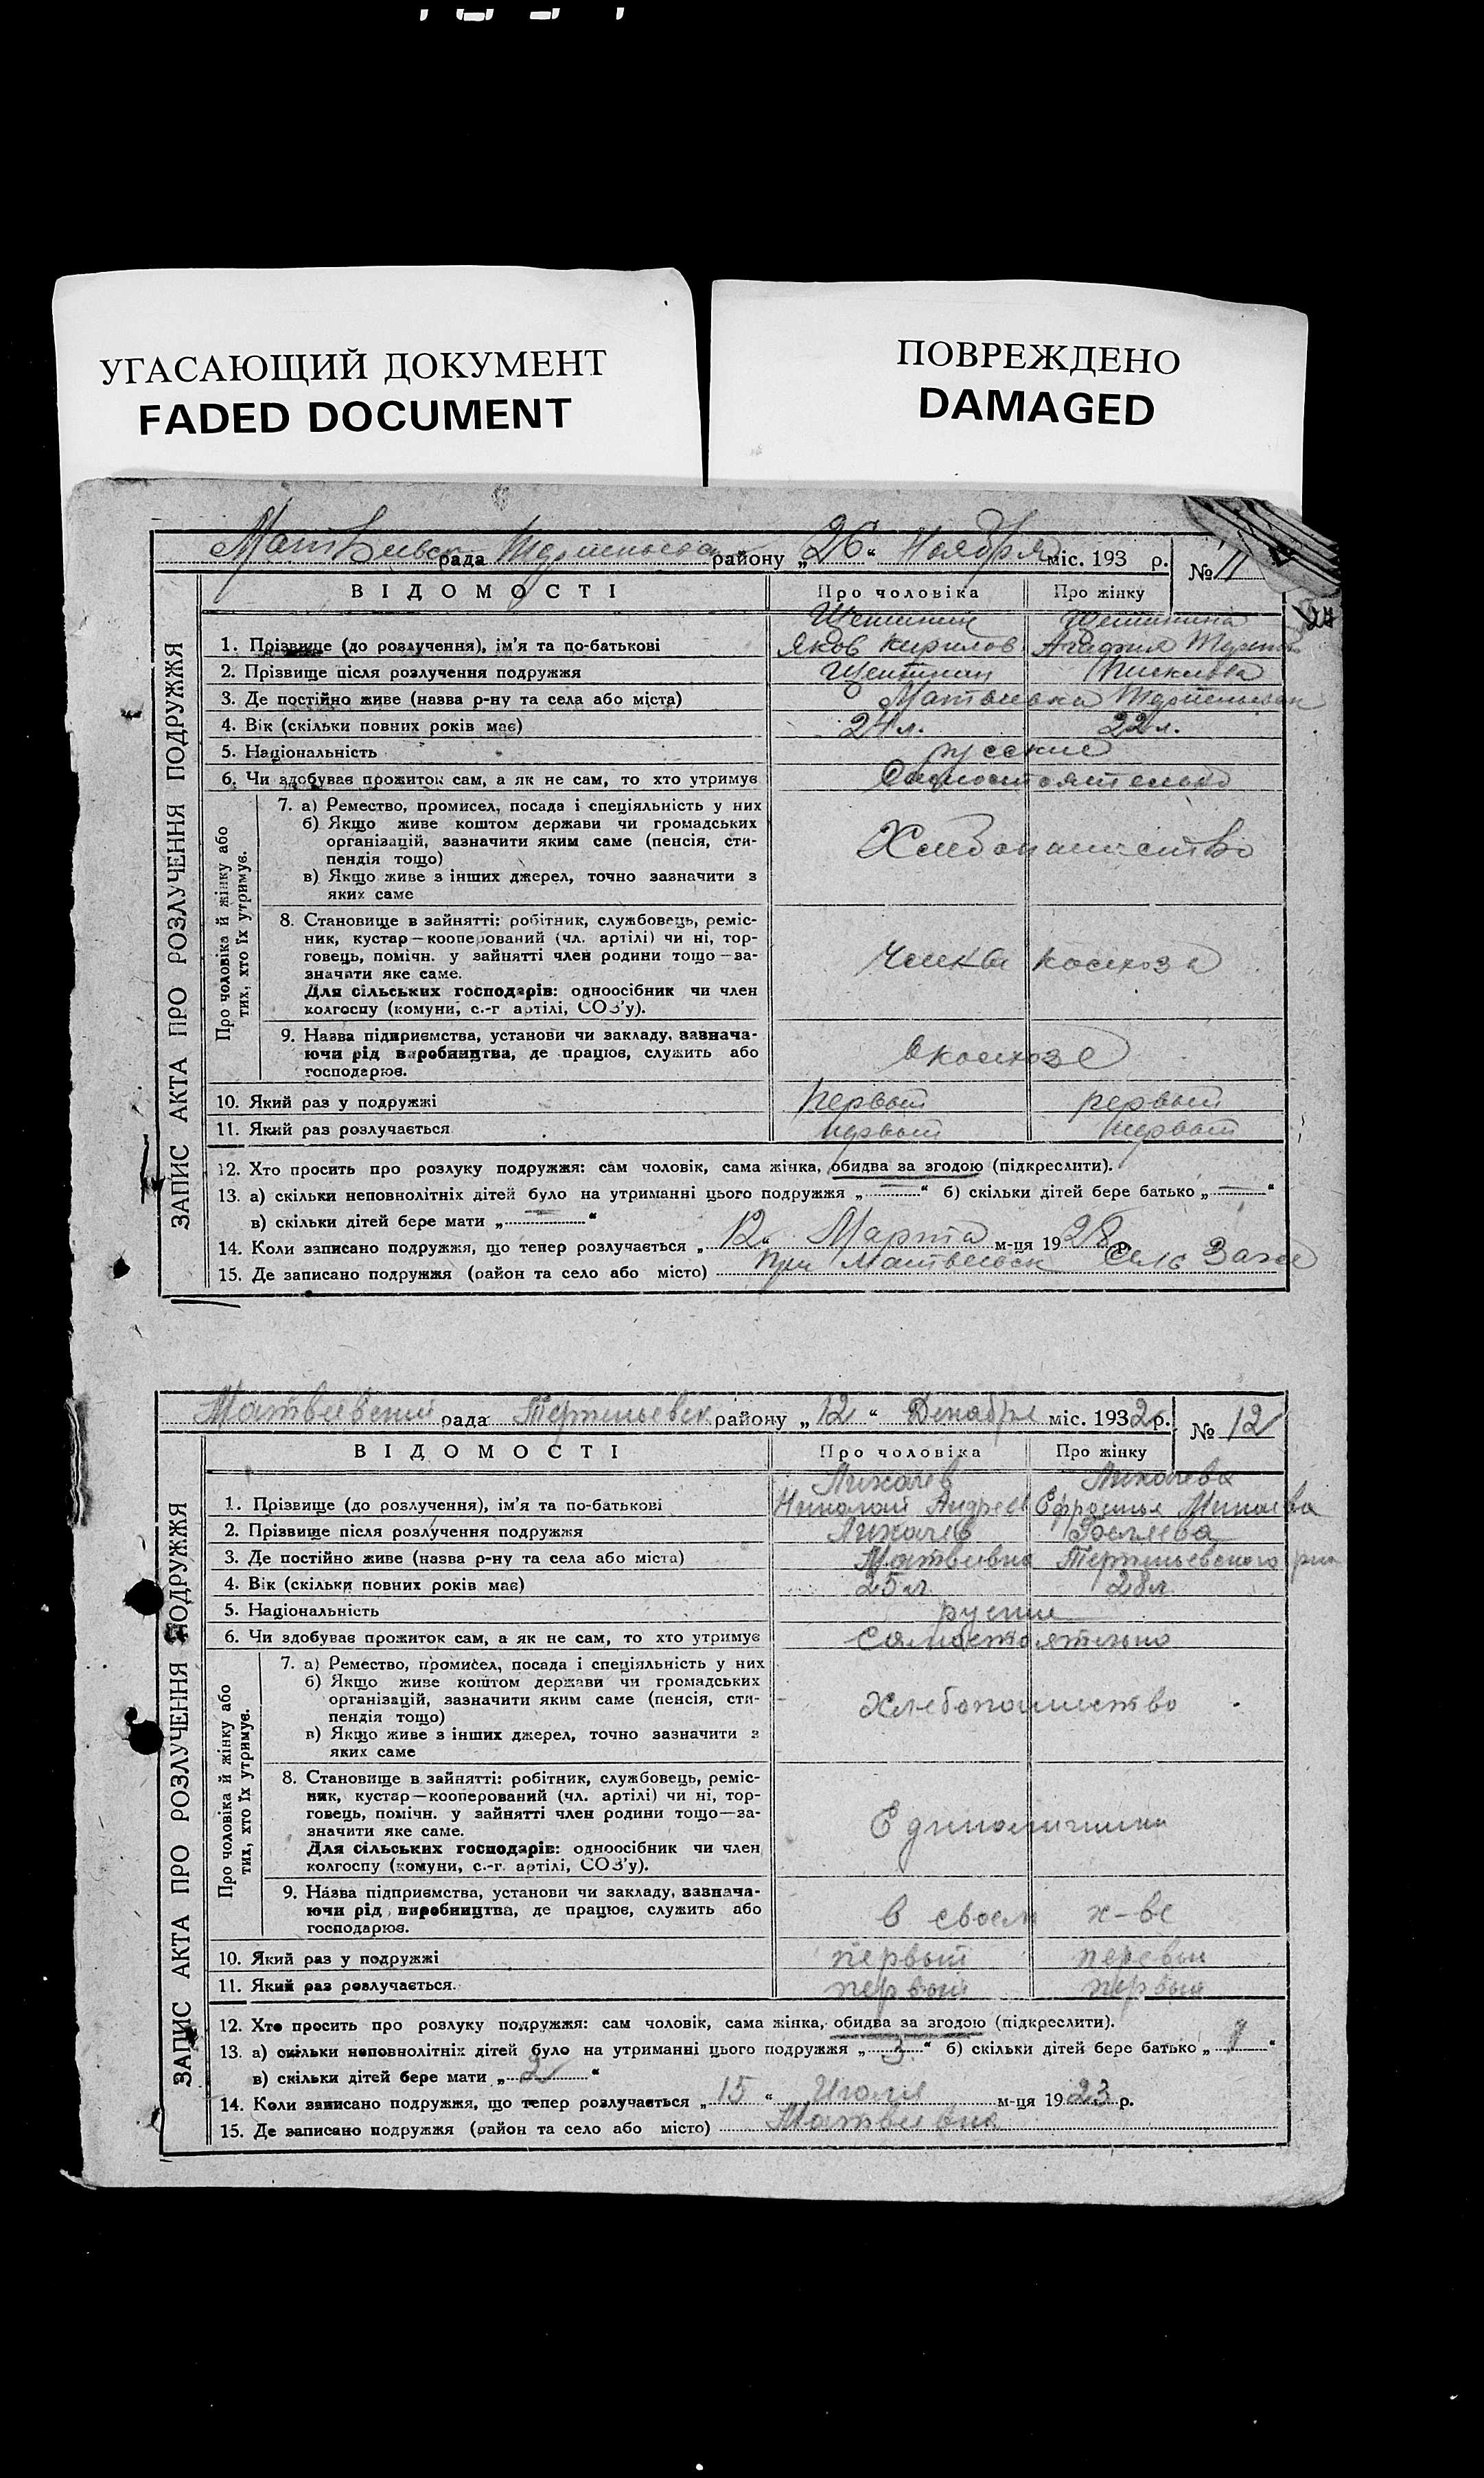 УГАСАЮЩИЙ ДОКУМЕНТ
FADED DOCUMENT
ПОВРЕЖДЕНО
DAMAGED
рада району „26“ Ноября міс. 193 р. № 11
ЗАПИС АКТА ПРО РОЗЛУЧЕННЯ ПОДРУЖЖЯ
ВІДОМОСТІ Про чоловіка Про жінку
Щетинин Щетинина
1. Прізвище (до розлучення), ім'я та по-батькові Яков Кирилов Агафия
2. Прізвище після розлучення подружжя Щетинин
3. Де постійно живе (назва р-ну та села або міста) Матвеевка
4. Вік (скільки повних років має) 24 л. 22 л.
5. Національність русские
6. Чи здобуває прожиток сам, а як не сам, то хто утримує Самостоятельно
Про чоловіка й жінку або тих, хто їх утримує.
7. а) Ремество, промисел, посада і спеціяльність у них
б) Якщо живе коштом держави чи громадських
організацій, зазначити яким саме (пенсія, сти-
пендія тощо) Хлебопашество
в) Якщо живе з інших джерел, точно зазначити з
яких саме
8. Становище в зайнятті: робітник, службовець, реміс-
ник, кустар—кооперований (чл. артілі) чи ні, тор-
говець, помічн. у зайнятті член родини тощо—за-
значити яке саме. колхоза
Для сільських господарів: одноосібник чи член
колгоспу (комуни, с.-г артілі, СОЗ'у).
9. Назва підприємства, установи чи закладу, зазнача-
ючи рід виробництва, де працює, служить або в колхозе
господарює.
10. Який раз у подружжі первый первый
11. Який раз розлучається первый первый
12. Хто просить про розлуку подружжя: сам чоловік, сама жінка, обидва за згодою (підкреслити).
13. а) скільки неповнолітніх дітей було на утриманні цього подружжя „—“ б) скільки дітей бере батько „—“
в) скільки дітей бере мати „—“
14. Коли записано подружжя, що тепер розлучається „12“ Марта м-ця 1928 р.
15. Де записано подружжя (район та село або місто) При Матвеевск
Матвеевский рада района „12“ Декабря міс. 1932 р. № 12
ЗАПИС АКТА ПРО РОЗЛУЧЕННЯ ПОДРУЖЖЯ
ВІДОМОСТІ Про чоловіка Про жінку
Лихачев Лихачева
1. Прізвище (до розлучення), ім'я та по-батькові Николай Андреев Ефросинья
2. Прізвище після розлучення подружжя Лихачев
3. Де постійно живе (назва р-ну та села або міста) Матвеевка
4. Вік (скільки повних років має) 25 л 28 л
5. Національність
6. Чи здобуває прожиток сам, а як не сам, то хто утримує Самостоятельно
Про чоловіка й жінку або тих, хто їх утримує.
7. а) Ремество, промисел, посада і спеціяльність у них
б) Якщо живе коштом держави чи громадських
організацій, зазначити яким саме (пенсія, сти-
пендія тощо) Хлебопашество
в) Якщо живе з інших джерел, точно зазначити з
яких саме
8. Становище в зайнятті: робітник, службовець, реміс-
ник, кустар—кооперований (чл. артілі) чи ні, тор-
говець, помічн. у зайнятті член родини тощо—за-
значити яке саме. Единоличники
Для сільських господарів: одноосібник чи член
колгоспу (комуни, с.-г. артілі, СОЗ'у).
9. Назва підприємства, установи чи закладу, зазнача-
ючи рід виробництва, де працює, служить або в своем х-ве
господарює.
10. Який раз у подружжі первый
11. Який раз розлучається. первый первый
12. Хто просить про розлуку подружжя: сам чоловік, сама жінка, обидва за згодою (підкреслити).
13. а) скільки неповнолітніх дітей було на утриманні цього подружжя „3“ б) скільки дітей бере батько „1“
в) скільки дітей бере мати „2“
14. Коли записано подружжя, що тепер розлучається „15“ Июля м-ця 1923 р.
15. Де записано подружжя (район та село або місто) Матвеевка